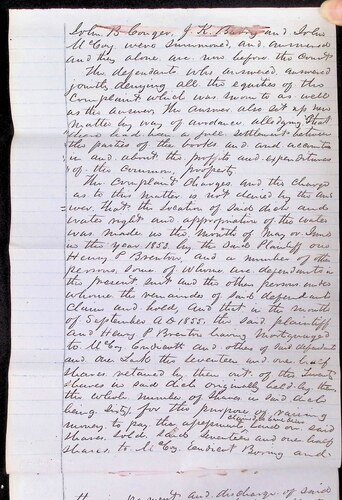 John B Conger, J. K. Boring and John
McCoy were summoned and answered
and they alone are now before the Court
The defendants who answered, answered
jointly denying all the equities of this
Complaint which was sworn to as well
as the answer, The answer also set up new
matter by way of avoidance alledging that
there had been a full settlement between
the parties of the books and and accounts
in and about the profits and expenditures
of the Common property
The Complaint Charges and the Charge
as to this matter is not denied by the ans
wer, That the location of said ditch and
water right and appropriation of the water
was made in the month of May or June
in the year 1853. by the said Plaintiff one
Henry P Brenton, and a number of other
persons some of whom are defendants in
the present suit and the other persons under
whom the remainder of said defendants
Claim and hold, And that in the month
of September A.D. 1855. the said plaintiff
and Henry P Brenton having mortgaged
to McCoy Endicott and others of said defendants
and One Lask the seventeen and one half
shares retained by them out of the Twenty
shares in said ditch originally held by them
the whole number of shares in said ditch
being Sixty, for the purpose of raising
money to pay the assessments levied on said
shares sold said seventeen and one half
shares to McCoy Endicott Boring and
payment and discharge of said